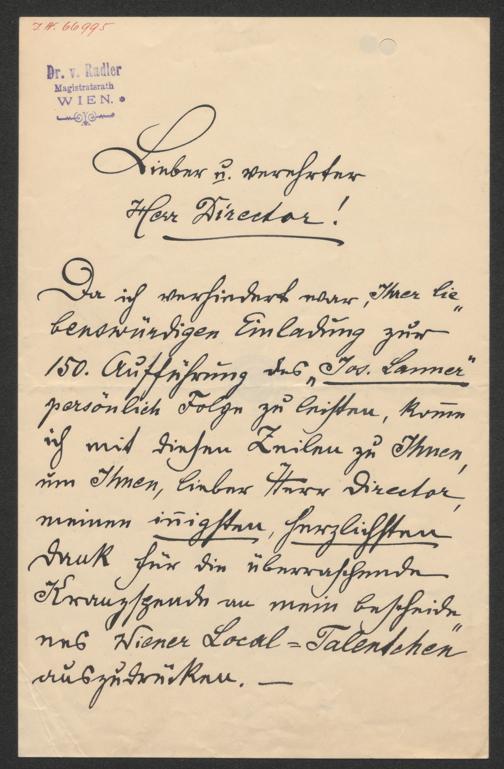 I.N. 66995
Dr. v. Radler
Magistratsrath
WIEN.
Lieber u. verehrter
Herr Director!
Da ich verhindert war, Ihrer lie„
benswürdigen Einladung zur
150. Aufführung des „Jos. Lanner"
persönlich Folge zu leisten, kom̅e
ich mit diesen Zeilen zu Ihnen,
um Ihnen, lieber Herr Director,
meinen in̅igsten, herzlichsten
Dank für die überraschende
Kranzspende an mein bescheide„
nes Wiener Local=Talentchen
auszudrücken. —